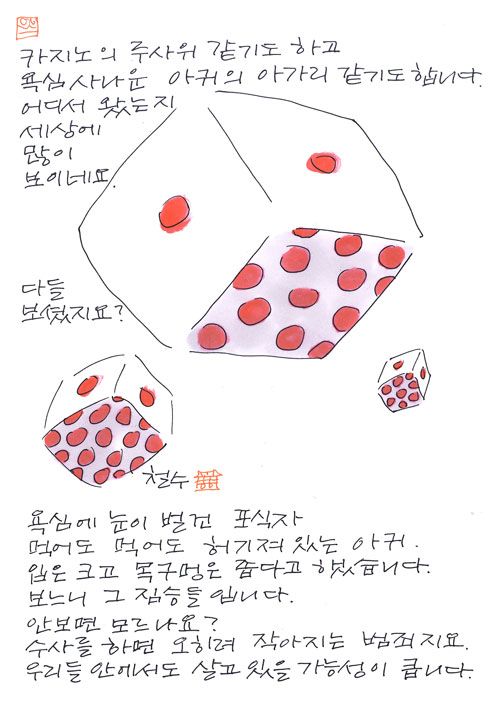 카지노의 주사위 같기도 하고
욕심사나운 아귀의 아가리 같기도합니다.
어디서 왔는지
세상에
많이
보이네요.
다들
보셨지요?
철수
욕심에 눈이 벌건 포식자
먹어도 먹어도 허기져있는 아귀.
입은 크고 목구멍은 좁다고 했습니다.
보느니 그 짐승들 입니다.
안보면 모르나요?
수사를 하면 오히려 작아지는 범죄지요.
우리들 안에서도 살고 있을 가능성이 큽니다.